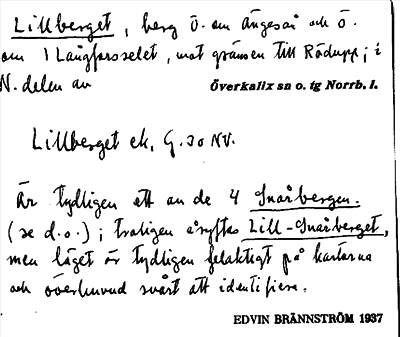 Lillberget, berg Ö. om Ängesån och Ö.
om Långforsselet, mot gränsen till Rödupp; i
N. delen av Överkalix sn o. tg Norrb. l.
Lillberget ek, G. 30 NV.
Är tydligen ett av de 4 Snårbergen.
(se d.o.); troligen åsyftas Lill-Snårberget,
men läget är tydligen felaktigt på kartorna
och överhuvud svårt att identifiera.
EDVIN BRÄNNSTRÖM 1937